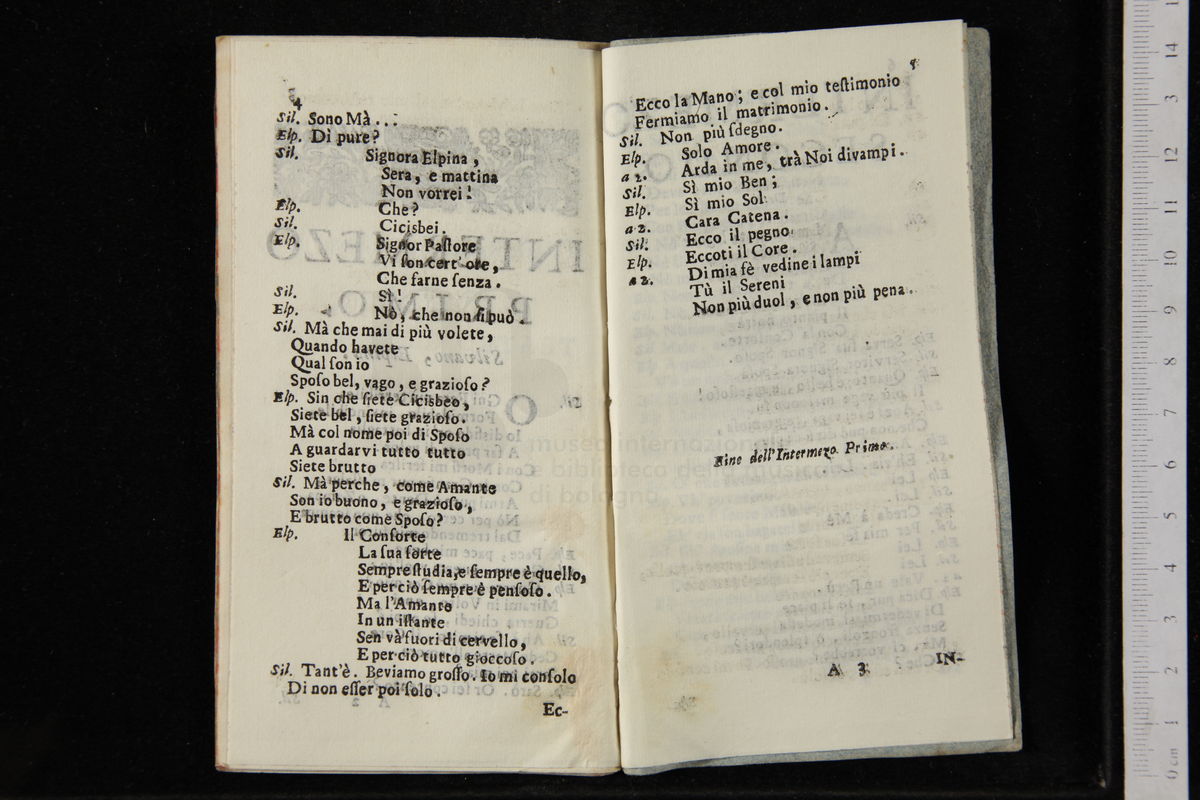 4
Sil. Sono Mà...
Elp. Di pure?
Sil. Signora Elpina,
Sera, e mattina
Non vorrei!
Elp. Che?
Sil. Cicisbei.
Elp. Signor Paſtore
Vi ſon cert'ore,
Che farne ſenza.
Sil. Sì!
Elp. Nò, che non ſi può.
Sil. Mà che mai di più volete,
Quando havete
Qual ſon io
Spoſo bel, vago, e grazioſo?
Elp. Sin che ſiete Cicisbeo,
Siete bel, ſiete grazioſo.
Mà col nome poi di Spoſo
A guardarvi tutto tutto
Siete brutto
Sil. Mà perche, come Amante
Son io buono, e grazioſo,
E brutto come Spoſo?
Elp. Il Conſorte
La ſua ſorte
Sempre ſtudia, e ſempre è quello,
E perciò ſempre è penſoſo.
Ma l'Amante
In un iſtante
Sen và fuori di cervello,
E perciò tutto gioccoſo.
Sil. Tant'è. Beviamo groſſo. Io mi conſolo
Di non eſſer poi ſolo.
Ec-
Ecco la Mano; e col mio teſtimonio
Fermiamo il matrimonio.
Sil. Non più ſdegno.
Elp. Solo Amore.
a 2. Arda in me, trà Noi divampi.
Sil. Sì mio Ben;
Elp. Sì mio Sol
a 2. Cara Catena.
Sil. Ecco il pegno
Elp. Eccoti il Core.
a 2. Di mia fè vedine i lampi
Tù il Sereni
Non più duol, e non più pena.
Fine dell'Intermezo Primo.
A 3
IN-
museo internazionale
e biblioteca della musica
di bologna
0 cm 1 2 3 4 5 6 7 8 9 10 11 12 13 14